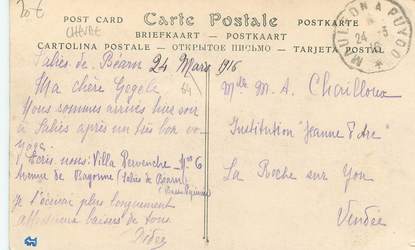 20 €
CHEVRE
POST CARD Carte Postale POSTKARTE
BRIEFKAART — POSTKAART
CARTOLINA POSTALE — ОТКРЫТОЕ ПИСЬМО — TARJETA POSTAL
MAULÉON A PUYOO
24 - 3
16
Saliès-de-Béarn 24 Mars 1916
64
Ma chère Gogele
Nous sommes arrivés hier soir
à Saliès après un très bon vo-
yage.
Écris-nous: Villa Pervenche, N° 6
Avenue de Bayonne (Saliès de Béarn)
(Basses Pyrénées)
Je t'écrirai plus longuement
affectueux baisers de tous
Melle M. A. Chailloux
Institution "Jeanne d'Arc"
La Roche sur Yon
Vendée